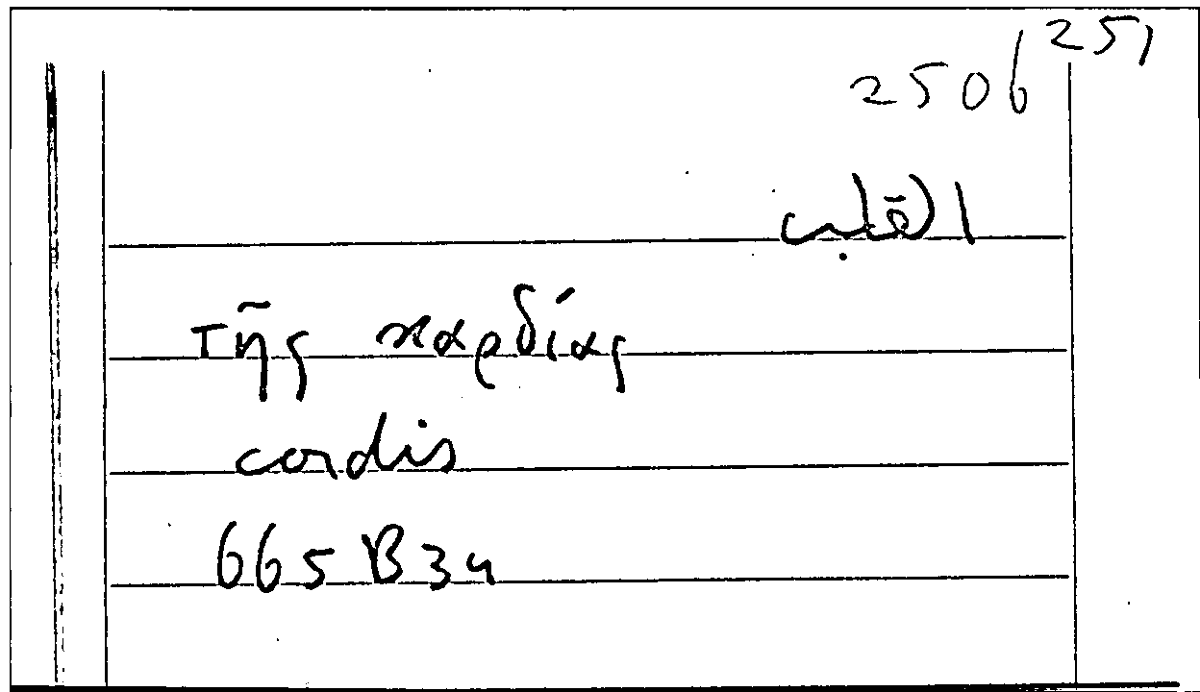 251
2506
القلب
τῆς καρδίας
cordis
665 B 34